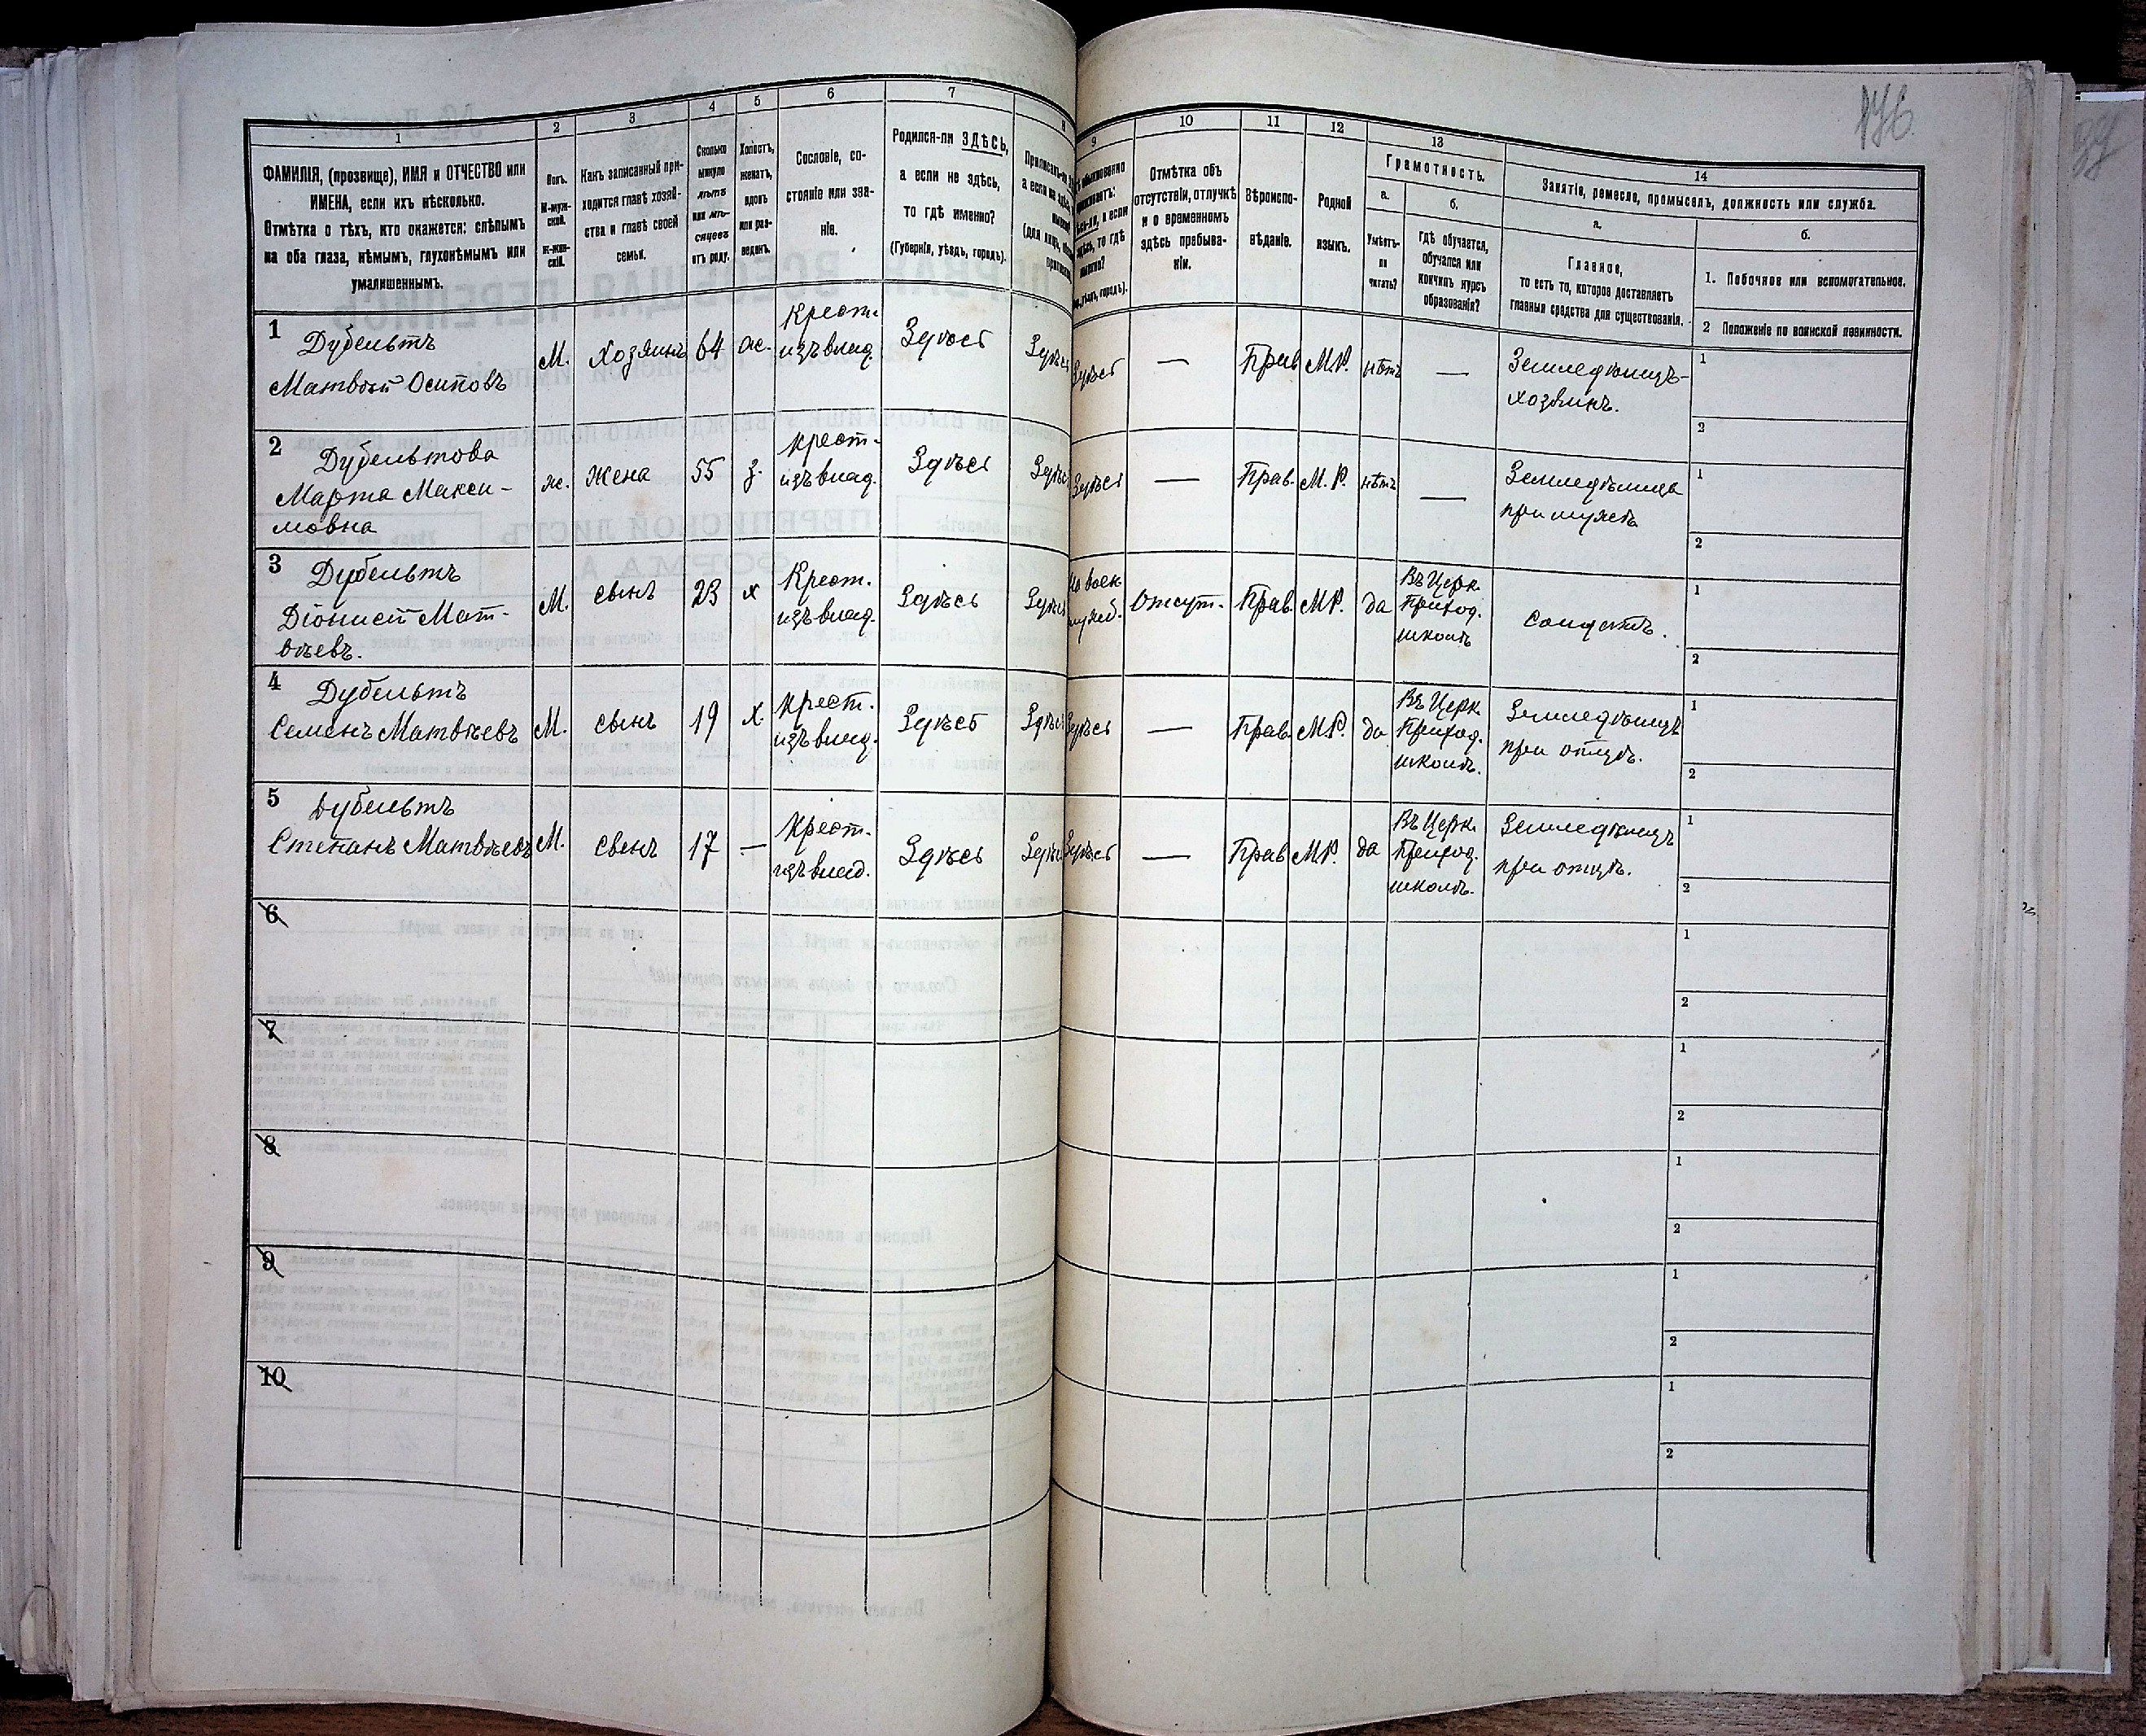 176
1
2
3
4
5
6
7
8
9
10
11
12
13
14
ФАМИЛІЯ, (прозвище), ИМЯ и ОТЧЕСТВО или
ИМЕНА, если ихъ нѣсколько.
Отмѣтка о тѣхъ, кто окажется: слѣпымъ
на оба глаза, нѣмымъ, глухонѣмымъ или
умалишеннымъ.
Полъ.
М-муж-
ской.
ж-жен-
скій.
Какъ записанный при-
ходится главѣ хозяй-
ства и главѣ своей
семьи.
Сколько
минуло
лѣтъ
или мѣ-
сяцевъ
отъ роду.
Холостъ,
женатъ,
вдовъ
или раз-
веденъ.
Сословіе, со-
стояніе или зва-
ніе.
Родился-ли ЗДѢСЬ,
а если не здѣсь,
то гдѣ именно?
(Губернія, уѣздъ, городъ).
Отмѣтка объ
отсутствіи, отлучкѣ
и о временномъ
здѣсь пребыва-
ніи.
Вѣроиспо-
вѣданіе.
Родной
языкъ.
Грамотность.
а.
Умѣетъ-
ли
читать?
б.
гдѣ обучается,
обучался или
кончилъ курсъ
образованія?
Занятіе, ремесло, промыселъ, должность или служба.
а.
Главное,
то есть то, которое доставляетъ
главныя средства для существованія.
б.
1. Побочное или вспомогательное.
2 Положеніе по воинской повинности.
1 Дубельтъ
Матвѣй Осиповъ
М. Хозяинъ 64 ж. Крест. изъ влад. Здѣсь Здѣсь Здѣсь — Прав М.Р. нѣтъ — Земледѣлецъ-
хозяинъ.
1
2
2 Дубельтова
Марта Макси-
мовна
ж. жена 55 з. Крест- изъ влад. Здѣсь Здѣсь Здѣсь — Прав. М.Р. нѣтъ — Земледѣлица
при мужѣ
1
2
3 Дубельтъ
Діонисій Мат-
вѣевъ.
М. сынъ 23 х Крест. изъ влад. Здѣсь Здѣсь На воен служб. Отсут. Прав. М.Р. да Въ Церк. Приход. школѣ солдатъ.
1
2
4 Дубельтъ
Семенъ Матвѣевъ
М. сынъ 19 х. Крест. изъ влад. Здѣсь Здѣсь Здѣсь — Прав. М.Р. да Въ Церк. Приход. школѣ. Земледѣлецъ
при отцѣ.
1
2
5 Дубельтъ
Степанъ Матвѣевъ
М. сынъ 17 — Крест. изъ влад. Здѣсь Здѣсь Здѣсь — Прав М.Р. да Въ Церк. Приход. школѣ. Земледѣлецъ
при отцѣ.
1
2
6
1
2
7
1
2
8
1
2
9
1
2
10
1
2